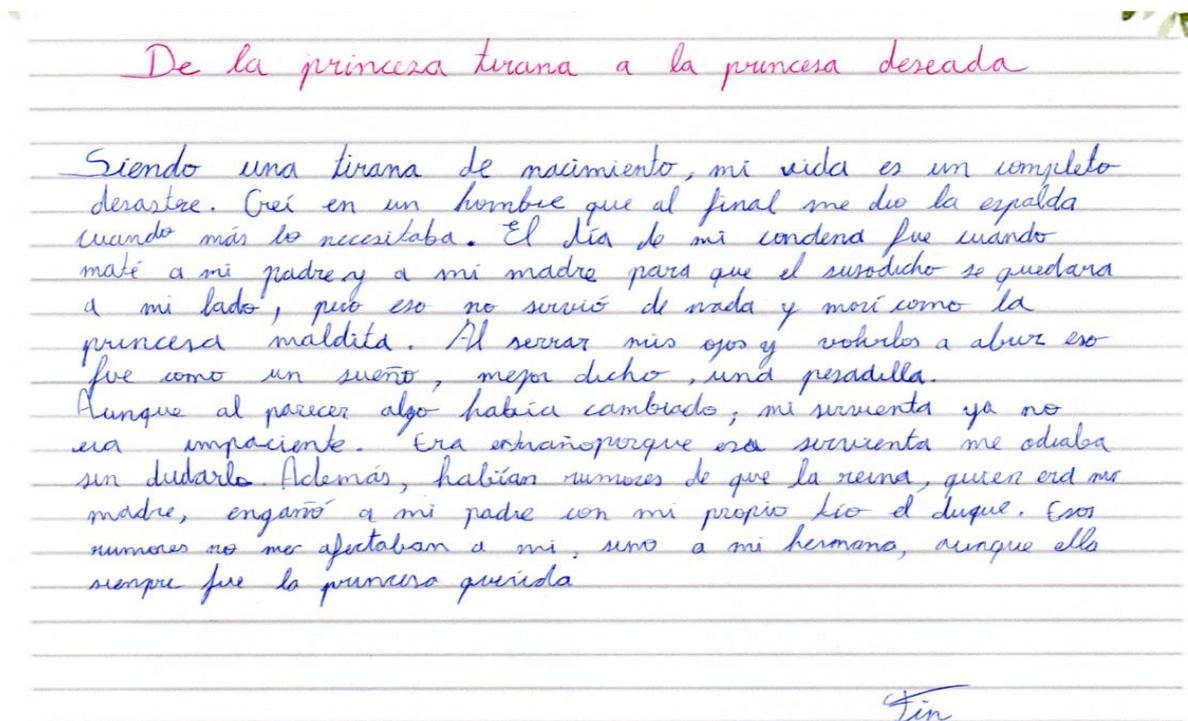 De la princesa tirana a la princesa deseada
Siendo una tirana de nacimiento, mi vida es un completo
desastre. Creí en un hombre que al final me dio la espalda
cuando más lo necesitaba. El día de mi condena fue cuando
maté a mi padre y a mi madre para que el susodicho se quedara
a mi lado, pero eso no sirvió de nada y morí como la
princesa maldita. Al serrar mis ojos y volverlos a abrir eso
fue como un sueño, mejor dicho, una pesadilla.
Aunque al parecer algo había cambiado, mi sirvienta ya no
era impaciente. Era extraño porque esa sirvienta me odiaba
sin dudarlo. Además, habían rumores de que la reina, quien era mi
madre, engañó a mi padre con mi propio tío el duque. Esos
rumores no me afectaban a mi, sino a mi hermana, aunque ella
siempre fue la princesa querida
Fin